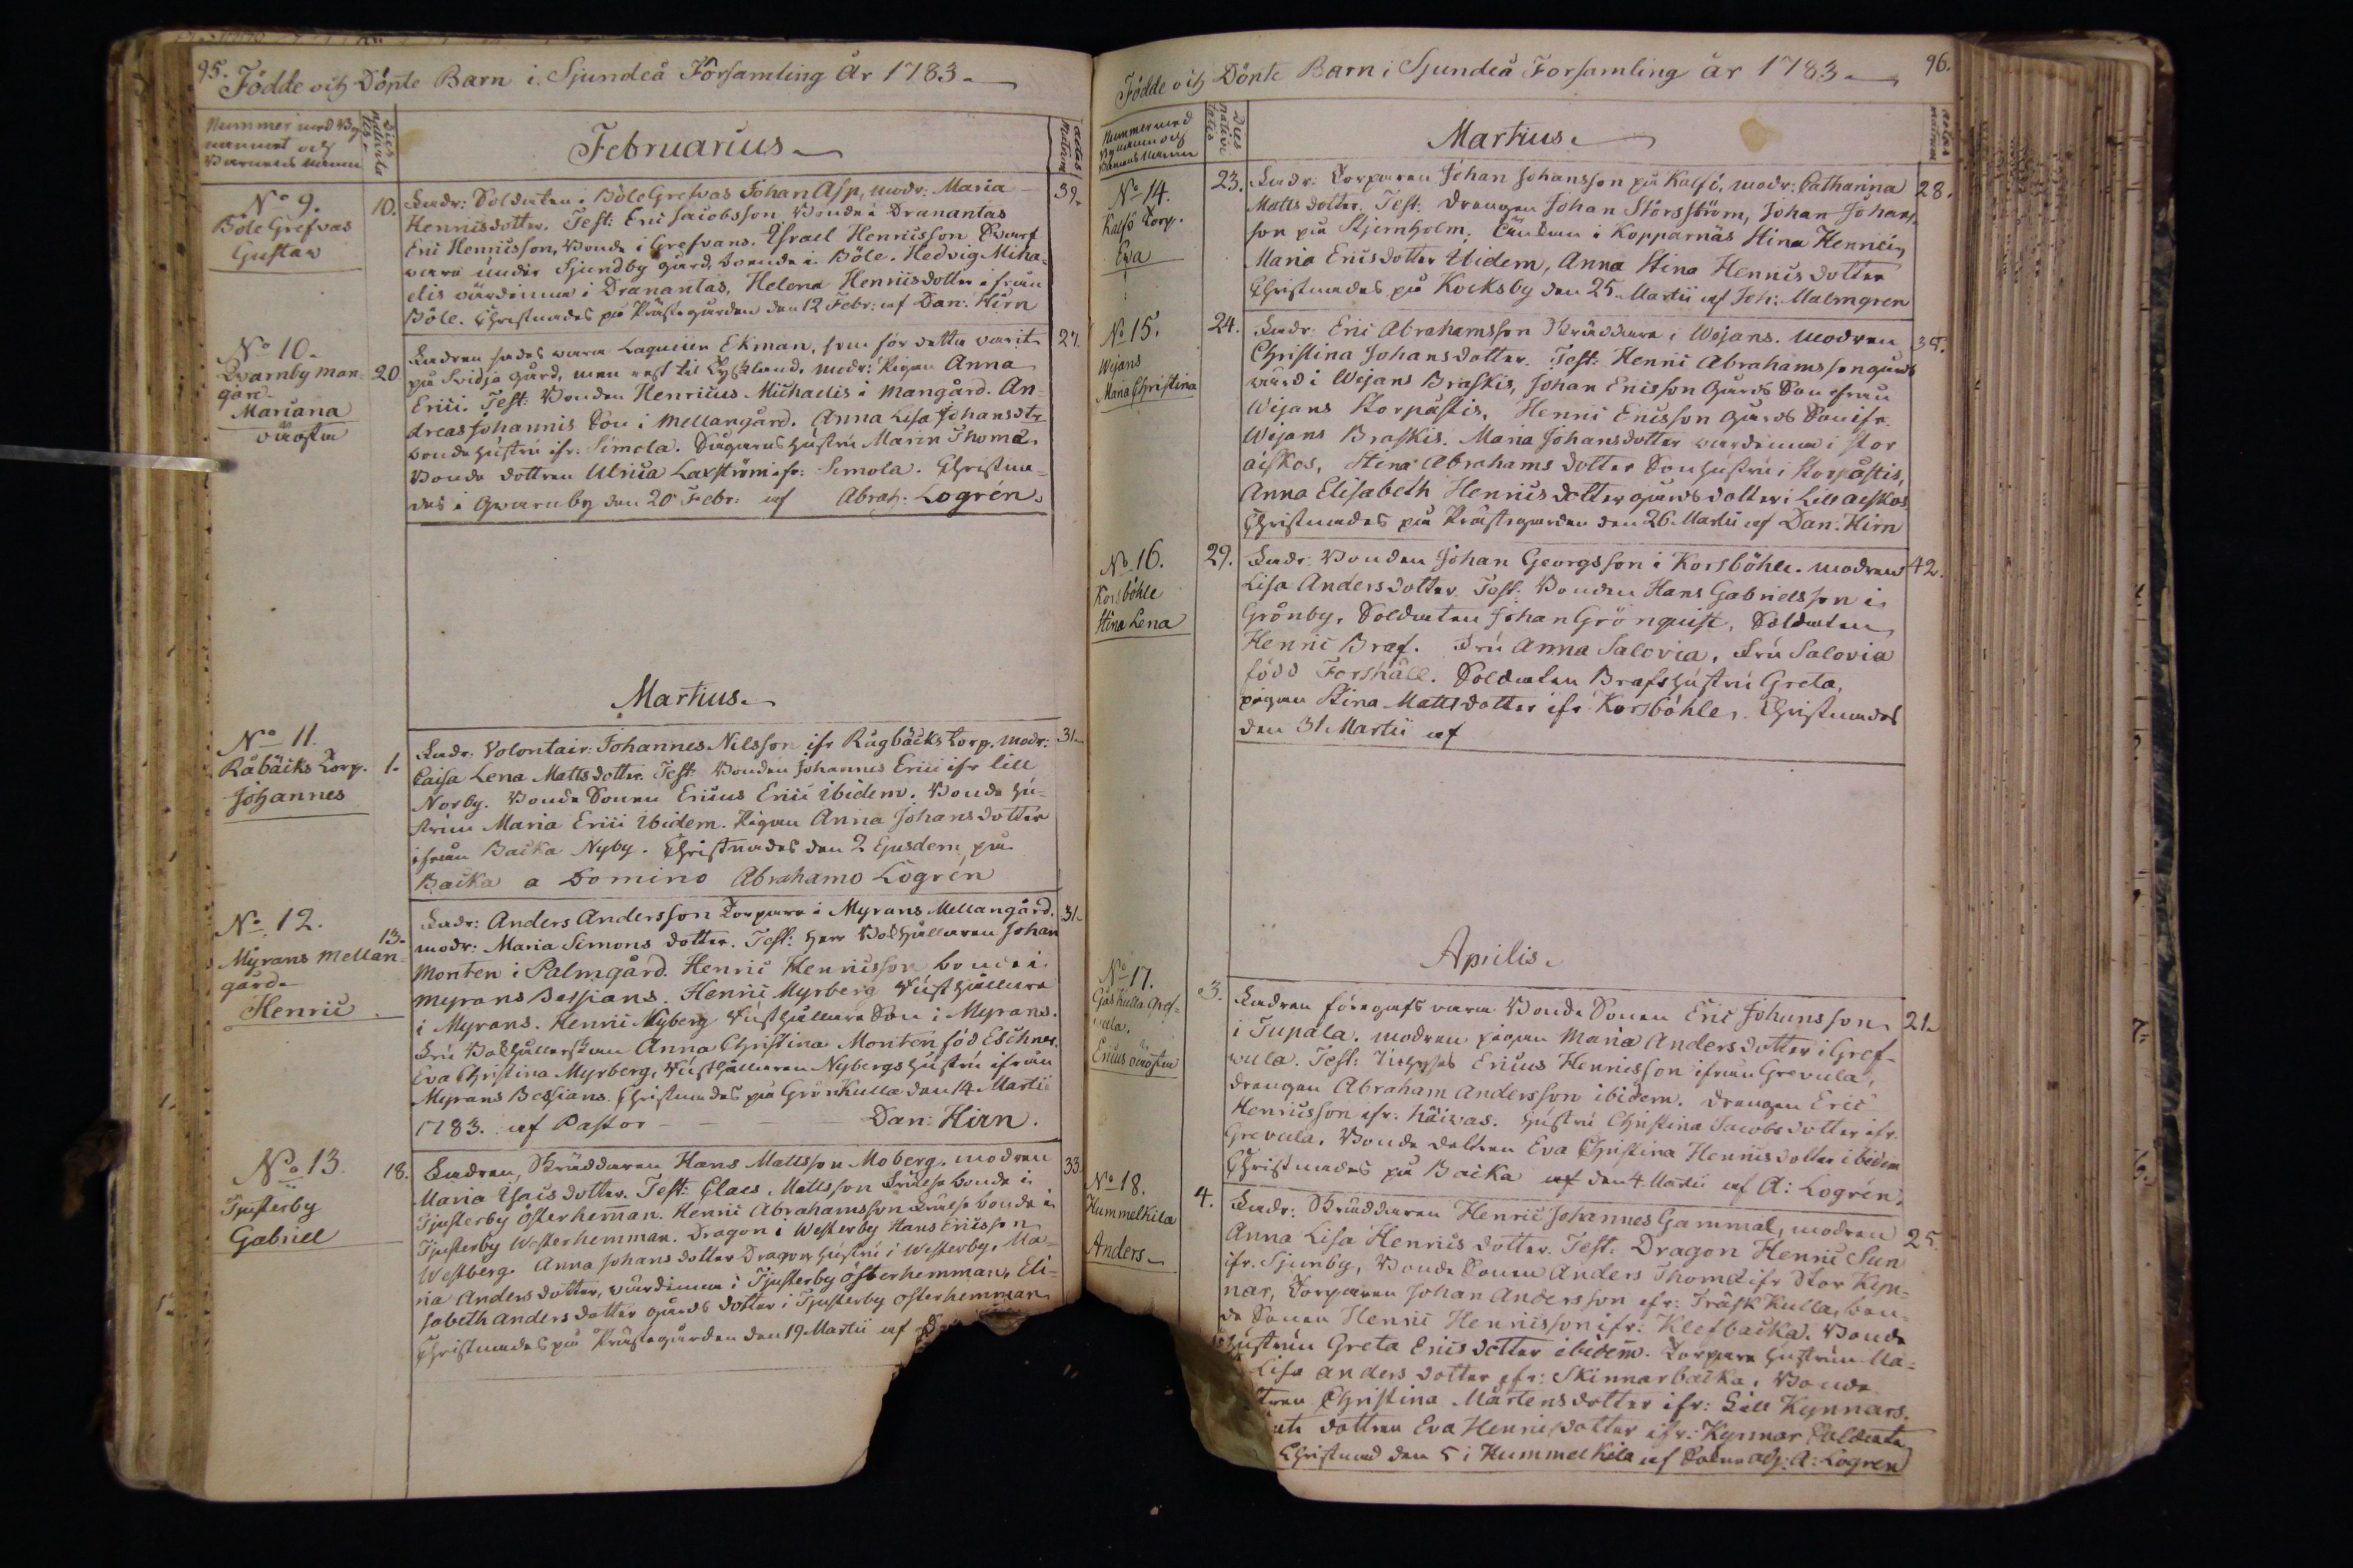 95. Födde och Döpte Barn i Sjundeå Församling År 1783
Nummer med By
namnet och
Barnens Namn
Dies nativita
tis
Februarius
aetas matrum
No 9.
Böle Grefvas
Gustav
10.
39.
Fadr: Soldaten i Böle Grefvas Johan Asp, modr: Maria
Henricsdotter. Test: Eric Jacobsson Bonde i Dranantas
Eric Henricsson, Bonde i Grefvans. Israel Henricsson Svarf
vare under Sjundby gård, boende i Böle. Hedvig Micha-
elis värdinna i Dranantas, Helena Henricsdotter ifrån
Böle. Christnades på Prästegården den 12 Febr: af Dan: Hirn
No 10.
Qvarnby Man
gård
Mariana
oäosta
20
27.
Fadren sades vara Laqueien Ekman, som för detta varit
på Svidja gård, men rest til Tyskland, modr: Pigan Anna
Erici. Test: Bonden Henricus Michaelis i Mangård. An-
dreas Johannis Son i Mellangård. Anna Lisa Johansdtr
bonde hustru ifr: Simola. Sågarens hustru Maria Thomæ.
Bonde dottren Ulrica Laxström ifr: Simola. Christna-
des i Qvarnby den 20 Febr: af Abrah: Logrén.
Martius
No 11.
Råbäcks Torp.
Johannes
1.
31.
Fadr: Volontair: Johannes Nilsson ifr Rågbäcks Torp. modr:
Caisa Lena Mattsdotter. Test: Bonden Johannes Erici ifr lill
Norby. Bonde Sonen Ericus Erici ibidem. Bonde hu-
strun Maria Erici ibidem. Pigan Anna Johansdotter
ifrån Backa Nyby. Christnades den 2 Ejusdem på
Backa a Domino Abrahamo Logrén
No 12.
Myrans Mellan-
gård
Henric
13.
31.
Fadr: Anders Andersson Torpare i Myrans Mellangård.
modr: Maria Simons dotter. Test: Herr Bokhållaren Johan
Monten i Palmgård. Henric Henricsson bonde i
Myrans Bessians. Henric Myrberg Rusthållare
i Myrans. Henric Nyberg Rusthållare Son i Myrans.
Fru Bokhållerskan Anna Christina Monten föd Eschner.
Eva Christina Myrberg, Rusthållaren Nybergs hustru ifrån
Myrans Bessians. Christnades på Grönkulla den 14 Martii
1783. af Pastor - - - Dan: Hirn.
No 13.
Tjusterby
Gabriel
18.
33.
Fadren, Skräddaren Hans Mattsson Moberg. modren
Maria Isacsdotter. Test: Claes Mattsson Frälse bonde i
Tjusterby Österhem̄an. Henric Abrahamsson Frälse bonde i
Tjusterby Westerhemman. Dragon i Westerby Hans Ericsson
Westberg. Anna Johans dotter Dragon hustru i Westerby. Ma-
ria Anders dotter, värdinna i Tjusterby Österhemman, Eli-
sabeth Anders dotter gårds dotter i Tjusterby Österhemman
Christnades på Prästegården den 19 Martii af
96.
Födde och Döpte Barn i Sjundeå Forsamling år 1783
Nummer med
Bynamn och
Barnens Namn
Dies nativi
tatis
Martius
aetas matrum
No 14.
Kalfs Torp.
Eva
23.
28.
Fadr: Torparen Johan Johansson på Kalfs, modr: Catharina
Matts dotter. Test: Drengen Johan Storsström, Johan Johans
son på Stjernholm. Enkan i Kopparnäs Stina Henrici,
Maria Ericsdotter Ibidem, Anna Stina Henrics dotter
Christnades på Kocksby den 25 Martii af Joh: Malmgren
No 15.
Wejans
Maria Christina
24.
35.
Fadr: Eric Abrahamsson Skräddare i Wejans. modren
Christina Johansdotter. Test: Henric Abrahamsson gårds
värd i Wejans Braskis, Johan Ericsson Gårds Son ifrån
Wejans Storpåstis. Henric Ericsson Gårds Son ifr.
Wejans Braskis. Maria Johansdotter värdinna i Stor
äiskos, Stina Abrahams dotter Son hustru i Storpåstis,
Anna Elisabeth Henricsdotter gårds dotter i Lill aeskos
Christnades på Prästegården den 26. Martii af Dan: Hirn
No 16.
Korsböhle
Stina Lena
29.
42.
Fadr: Bonden Johan Georgsson i Korsböhle. modren
Lisa Andersdotter. Test: Bonden Hans Gabrielsson i
Grönby, Soldaten Johan Grönquist, Soldaten
Henric Braf. Fru Anna Salovia, Fru Salovia
född Forshäll. Soldaten Brafs hustru Greta,
pigan Stina Mattsdotter ifr Korsböhle. Christnades
den 31 Martii af
Aprilis
No 17.
Gåskulla Gref-
vula.
Ericus oäosta
3.
21.
Fadren föregafs vara Bonde Sonen Eric Johansson
i Tupala. modren pigan Maria Anders dotter i Gref-
vula. Test: Ericus Henricsson ifrån Grevula,
drengen Abraham Andersson ibidem. Drengen Eric
Henricsson ifr. Häivas. hustru Christina Jacobs dotter ifr.
Grevula. Bonde dottren Eva Christina Henricsdotter ibidem
Christnades på Backa af den 4 Martii af A: Logrén.
No 18.
Hummelkila
Anders
4.
25.
Fadr: Skräddaren Henric Johannes Gammal, modren
Anna Lisa Henrics dotter. Test: Dragon Henric Sun
ifr. Sjunby, Bonde Sonen Anders Thomæ ifr Stor Kyn-
nar, Torparen Johan Andersson ifr: Träsk Kulla, bon-
de Sonen Henric Henricsson ifr: Klefbacka. Bonde
hustrun Greta Erics dotter ibidem. Torpare hustrun Ma-
Lisa Anders dotter ifr: Skinnarbacka, Bonde
tren Christina Mårtensdotter ifr: Lill Kynnars.
dottren Eva Henricsdotter ifr: Kynnar Soldate
Christnad den 5 i Hummelkila af adj: A: Logren